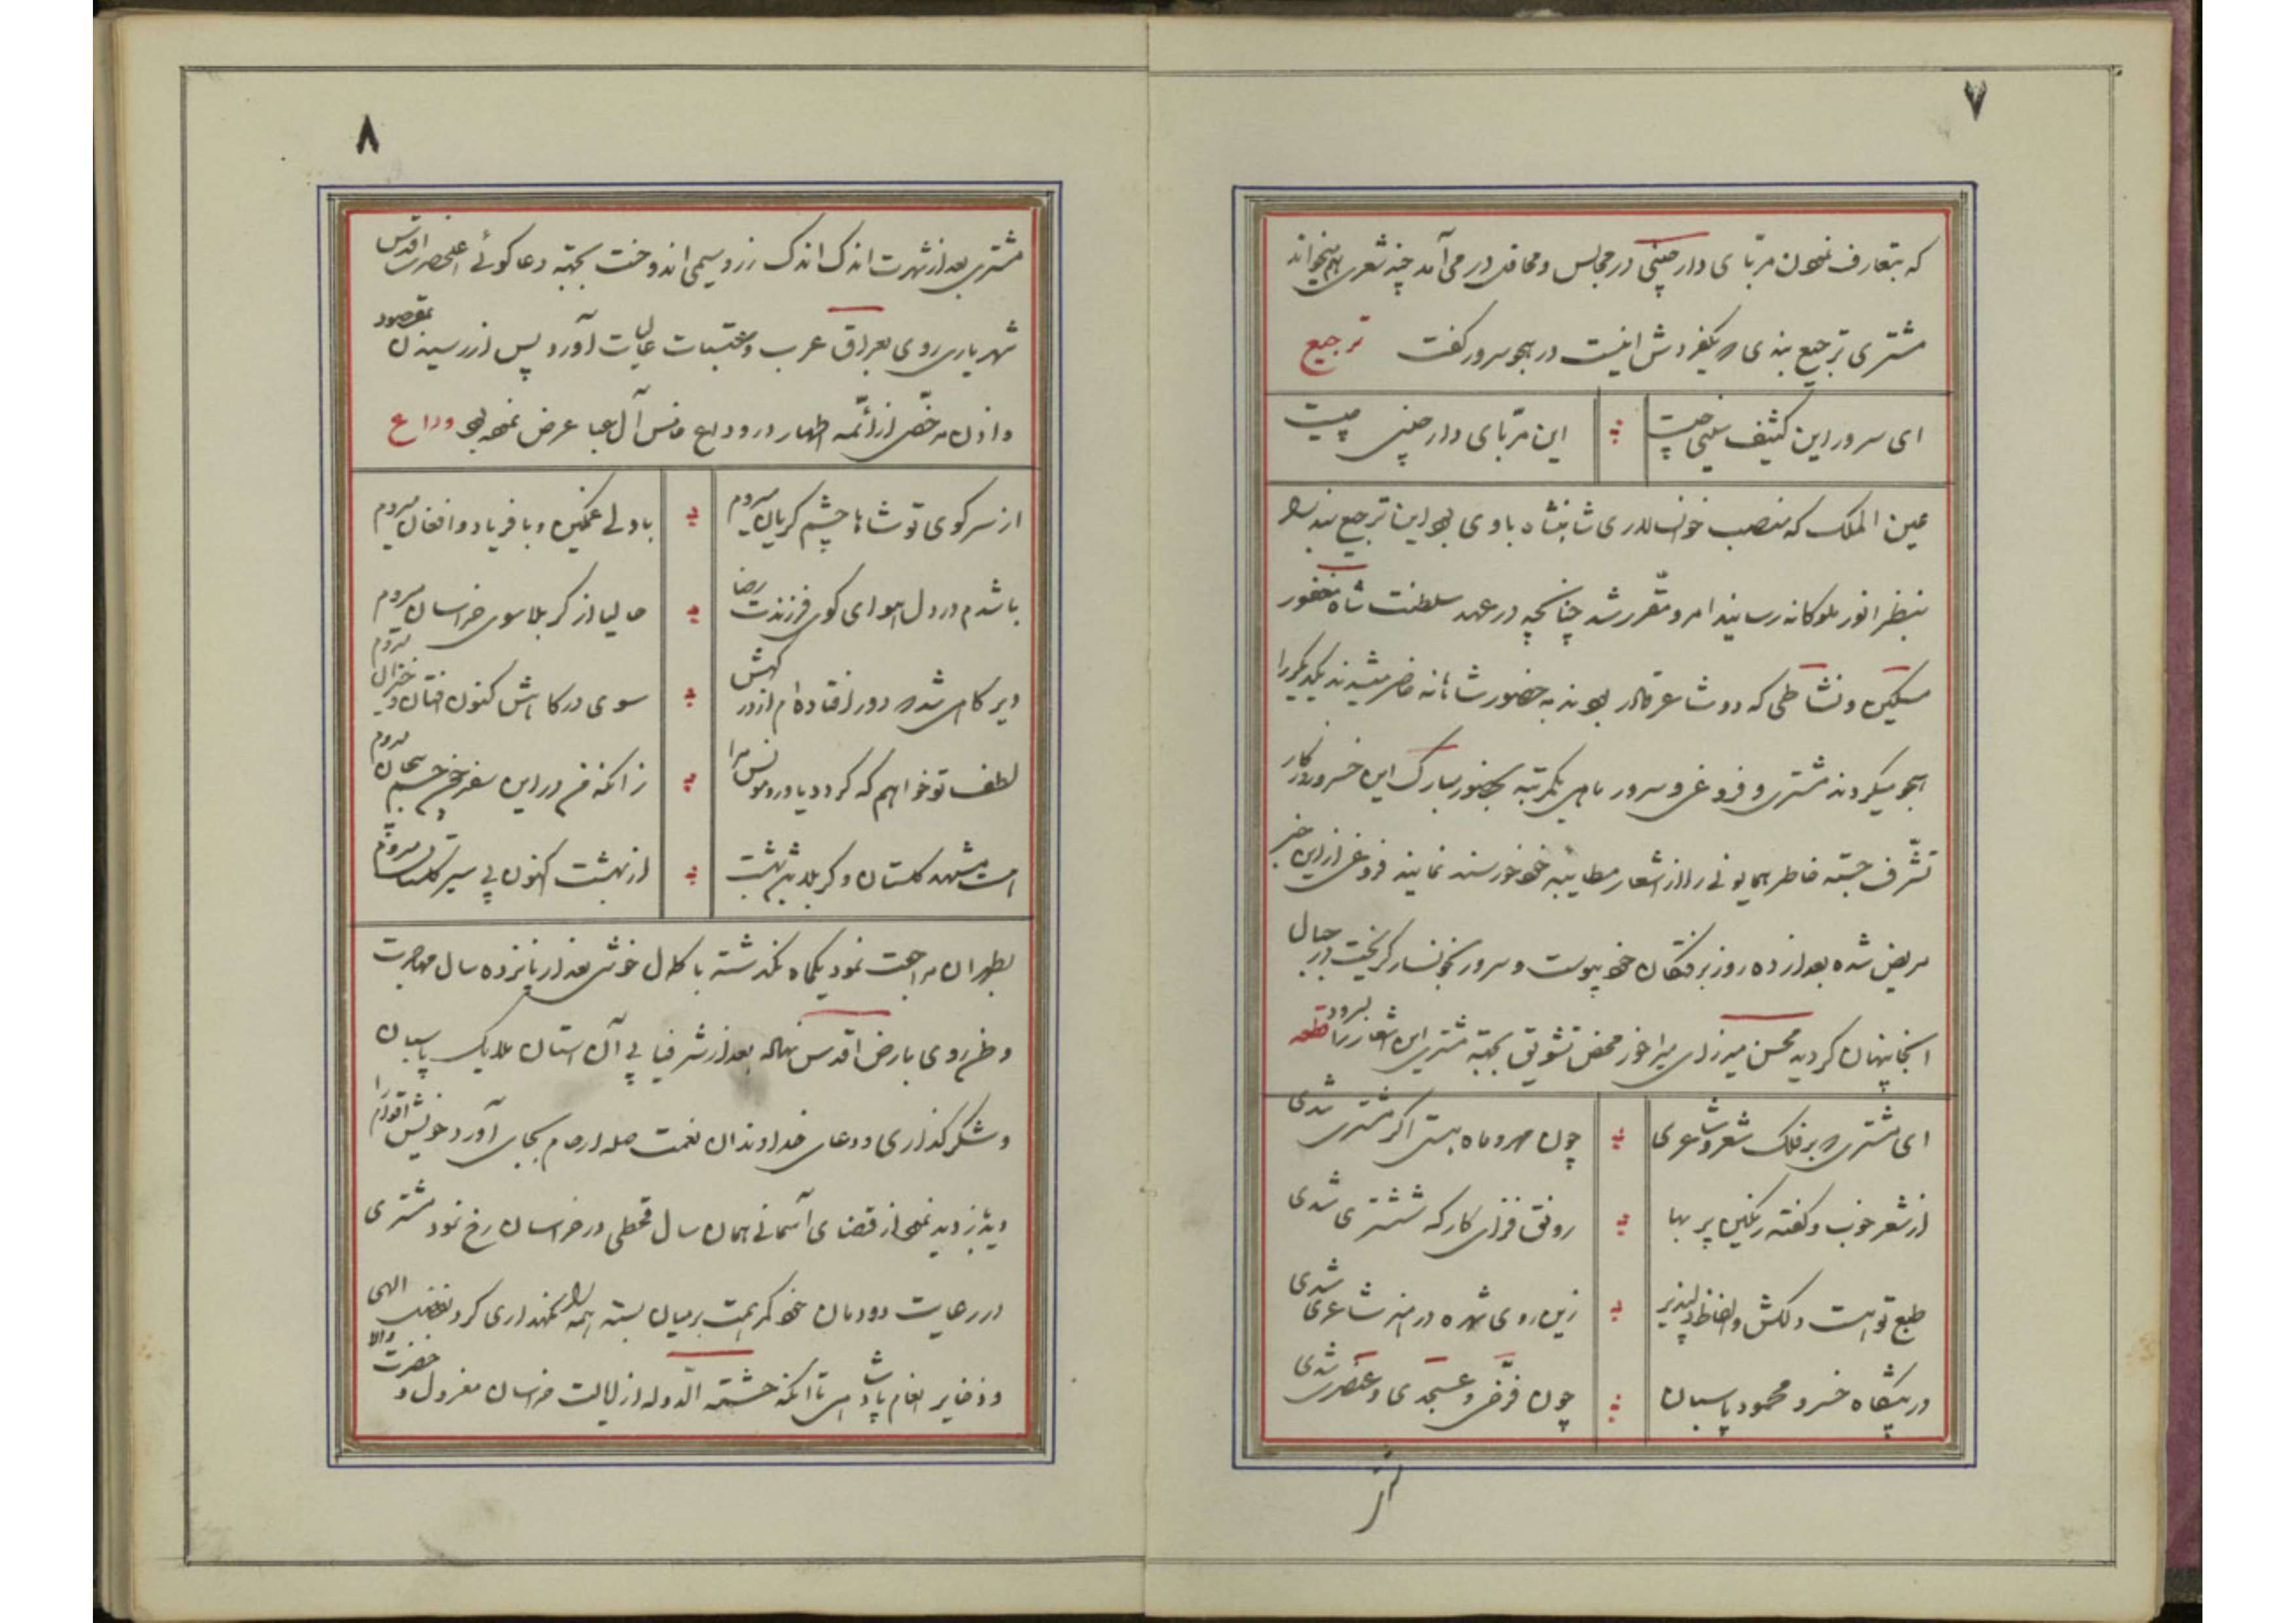 ۷
که بتعارف نمودن مربّای دارچینی در مجالس و محافل در می‌آمد چند شعری هم میخواند
مشتری ترجیع بندی که یکفردش اینست در هجو سرور گفت ترجیع
ای سرور این کثیف بینی چیست این مربّای دارچینی چیست
عین الملک که منصب خوانسالاری شاهنشاه باوی بود این ترجیع بند را
بنظر انور ملوکانه رسانید امر و مقّرر شد چنانچه در عهد سلطنت شاه مغفور
مسکین و نشاطی که دو شاعر قادر بودند به حضور شاهانه حاضر میشدند یکدیگر را
هجو میکردند مشتری و فروغی و سرور ماهی یکمرتبه بحضور مبارک این خسرو روزگار
تشّرف جسته خاطر همایونی را از اشعار مطایبه خود خورسند نمایند فروغی از این خبر
مریض شده بعد از ده روز برفتگان خود پیوست و سرور بخونسار گریخت در جبال
آنجا پنهان گردید محسن میرزای میرآخور محض تشویق بجهته مشتری این اشعار را بسرود قطعه
ای مشتری که بر فلک شعر و شاعری چون مهر و ماه هستی اگر مشتری شدی
از شعر خوب و گفته رنگین پر بها رونق فزای کارگه ششتری شدی
طبع تو است دلکش و الفاظ دلپذیر زین روی شهره در هنر شاعری شدی
در پیشگاه خسرو محمود پاسبان چون فرّخی و عسجدی و عنصری شدی
۸
مشتری بعد از شهرت اندک اندک زر و سیمی اندوخت بجهته دعا گوئی اعلیحضرت اقدس
شهریاری روی بعراق عرب و عتبات عالیات آورد پس از رسیدن بمقصود
و اذن مرخّصی از ائمّه اطهار در وداع خامس آل عبا عرض نموده بود وداع
از سر کوی تو شاها چشم گریان میروم با دلی غمگین و با فریاد و افغان میروم
باشدم در دل هوای کوی فرزندت رضا حالیا از کربلا سوی خراسان میروم
دیر گاهی شد که دور افتاده‌ام از درگهش سوی درگاهش کنون افتان و خیزان میروم
لطف تو خواهم که گردد یاور و مونس مرا زانکه من در این سفر
است مشهد گلستان و کربلا بهشت از بهشت اکنون پی سیر گلستان میروم
بطهران مراجعت نمود یکماه نگذشته با کمال خوشی بعد از پانزده سال مهاجرت
وطن روی بارض اقدس نهاد بعد از شرفیابی آن استان ملایک پاسبان
و شکر گذاری و دعای خداوندان نعمت صله ارحام بجای آورد خویش اقوام را
دید و باز دید نمود از قضای آسمانی همان سال قحطی در خراسان رخ نمود مشتری
در رعایت دودمان خود کمر همت بر میان بسته همه را نگهداری کرد بفضل الهی
و ذخایر انعام پادشاهی تا آنکه حشمته الدّوله از ایالت خراسان معزول و حضرت والا